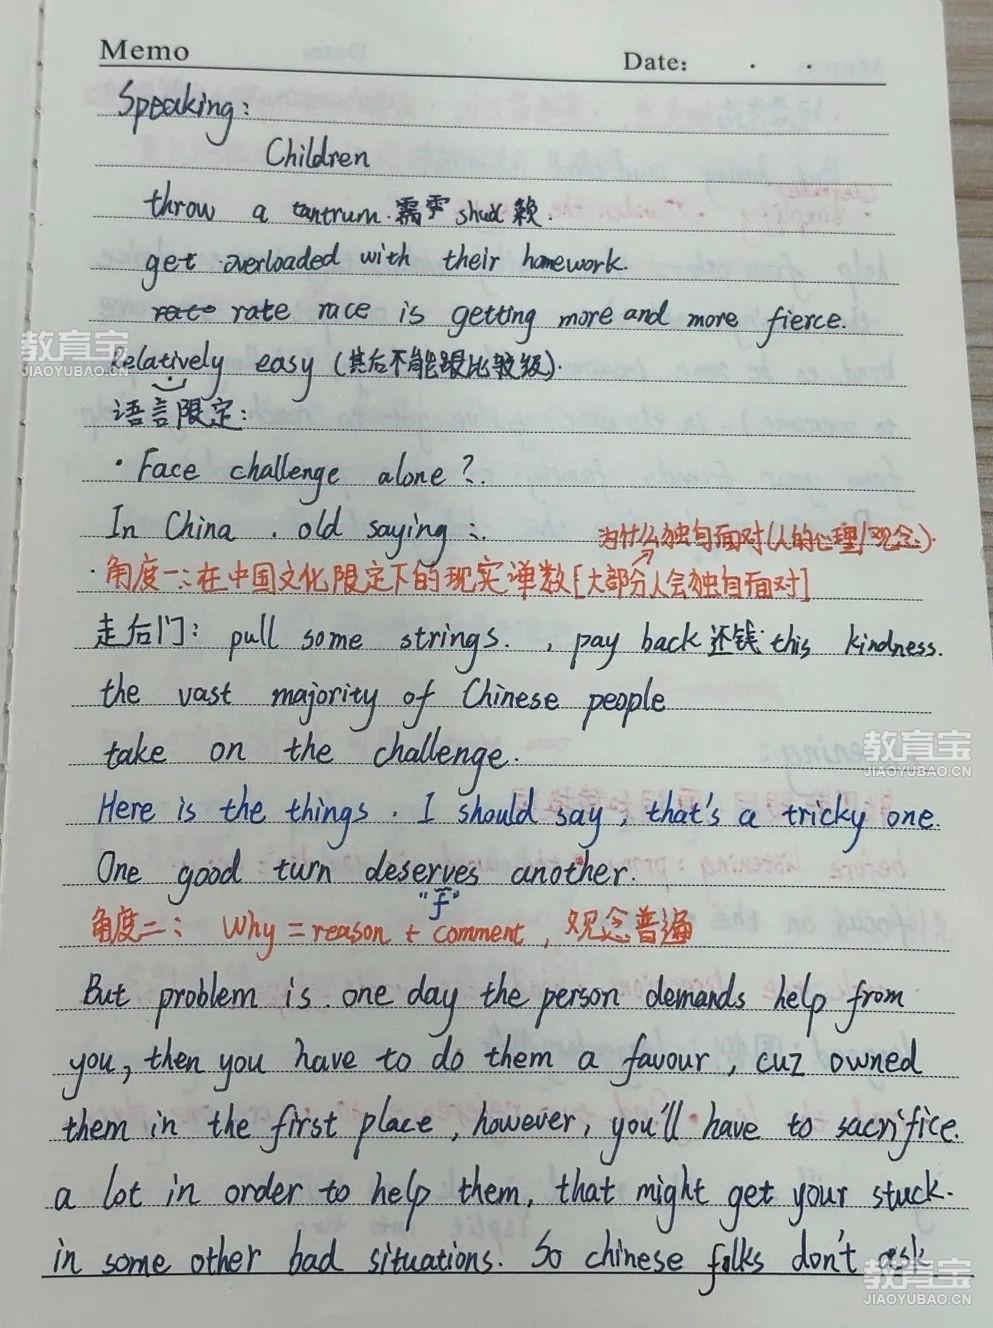 Memo Date: . .
Speaking:
Children
throw a tantrum.需要 shua 赖.
get overloaded with their homework.
rate rate race is getting more and more fierce.
Relatively easy (其后不能跟比较级).
语言限定:
· Face challenge alone?.
In China . old saying :. 为什么独自面对(人的心理/观念).
· 角度一:在中国文化限定下的现实弹数[大部分人会独自面对]
走后门: pull some strings. , pay back 还钱 this kindness.
the vast majority of Chinese people
take on the challenge.
Here is the things . I should say, that's a tricky one.
One good turn deserves another.
角度二: Why = reason + comment, 观念普遍
But problem is one day the person demands help from
you, then you have to do them a favour, cuz owned
them in the first place, however, you'll have to sacrifice.
a lot in order to help them, that might get your stuck.
in some other bad situations. So chinese folks don't ask
教育宝
JIAOYUBAO.CN
教育宝
JIAOYUBAO.CN
教育宝
JIAOYUBAO.CN